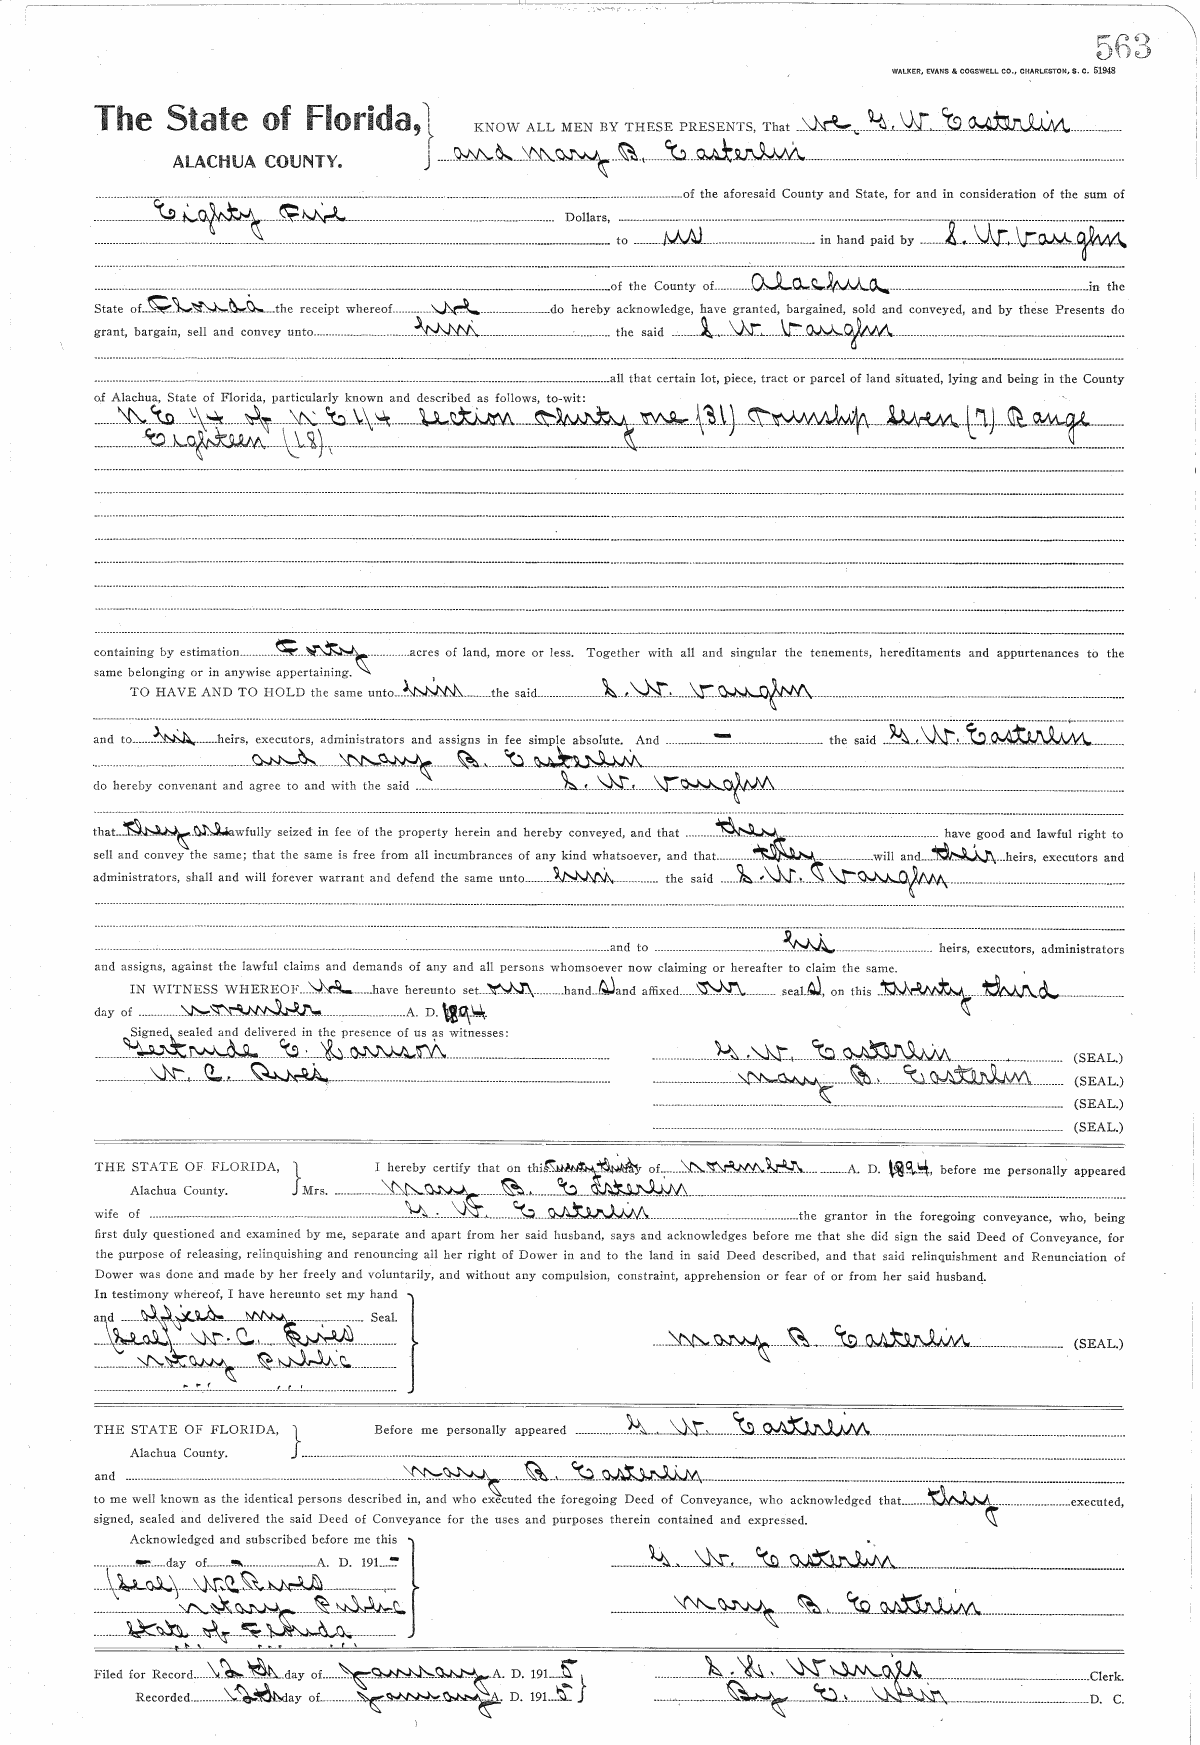 563
WALKER, EVANS & COGSWELL CO., CHARLESTON, S. C. 51948
The State of Florida, KNOW ALL MEN BY THESE PRESENTS, That we, G. W. Easterlin
ALACHUA COUNTY. and Mary B. Easterlin
of the aforesaid County and State, for and in consideration of the sum of
Eighty Five Dollars,
to us in hand paid by S. W. Vaughn
of the County of Alachua in the
State of Florida the receipt whereof we do hereby acknowledge, have granted, bargained, sold and conveyed, and by these Presents do
grant, bargain, sell and convey unto him the said S. W. Vaughn
all that certain lot, piece, tract or parcel of land situated, lying and being in the County
of Alachua, State of Florida, particularly known and described as follows, to-wit:
NE 1/4 of NE 1/4 Section Thirty one (31) Township Seven (7) Range
Eighteen (18),
containing by estimation Forty acres of land, more or less. Together with all and singular the tenements, hereditaments and appurtenances to the
same belonging or in anywise appertaining.
TO HAVE AND TO HOLD the same unto him the said S. W. Vaughn
and to his heirs, executors, administrators and assigns in fee simple absolute. And – the said G. W. Easterlin
and Mary B. Easterlin
do hereby convenant and agree to and with the said S. W. Vaughn
that they are lawfully seized in fee of the property herein and hereby conveyed, and that they have good and lawful right to
sell and convey the same; that the same is free from all incumbrances of any kind whatsoever, and that they will and their heirs, executors and
administrators, shall and will forever warrant and defend the same unto him the said S. W. Vaughn
and to his heirs, executors, administrators
and assigns, against the lawful claims and demands of any and all persons whomsoever now claiming or hereafter to claim the same.
IN WITNESS WHEREOF we have hereunto set our hand s and affixed our seal s, on this twenty third
day of November A. D. 1894
Signed, sealed and delivered in the presence of us as witnesses:
Gertrude E. Harrison G. W. Easterlin (SEAL.)
W. C. Rives Mary B. Easterlin (SEAL.)
(SEAL.)
(SEAL.)
THE STATE OF FLORIDA, I hereby certify that on this twenty third day of November A. D. 1894, before me personally appeared
Alachua County. Mrs. Mary B. Easterlin
wife of G. W. Easterlin the grantor in the foregoing conveyance, who, being
first duly questioned and examined by me, separate and apart from her said husband, says and acknowledges before me that she did sign the said Deed of Conveyance, for
the purpose of releasing, relinquishing and renouncing all her right of Dower in and to the land in said Deed described, and that said relinquishment and Renunciation of
Dower was done and made by her freely and voluntarily, and without any compulsion, constraint, apprehension or fear of or from her said husband.
In testimony whereof, I have hereunto set my hand
and affixed my Seal.
(Seal) W. C. Rives Mary B Easterlin (SEAL.)
Notary Public
THE STATE OF FLORIDA, Before me personally appeared G. W. Easterlin
Alachua County.
and Mary B. Easterlin
to me well known as the identical persons described in, and who executed the foregoing Deed of Conveyance, who acknowledged that they executed,
signed, sealed and delivered the said Deed of Conveyance for the uses and purposes therein contained and expressed.
Acknowledged and subscribed before me this
– day of – A. D. 191 – G. W. Easterlin
(Seal) W.C. Rives
Notary Public Mary B. Easterlin
State of Florida
Filed for Record 12th day of January A. D. 191 5 S. H. Wienges Clerk.
Recorded 12th day of January A. D. 191 5 By E. Weir D. C.